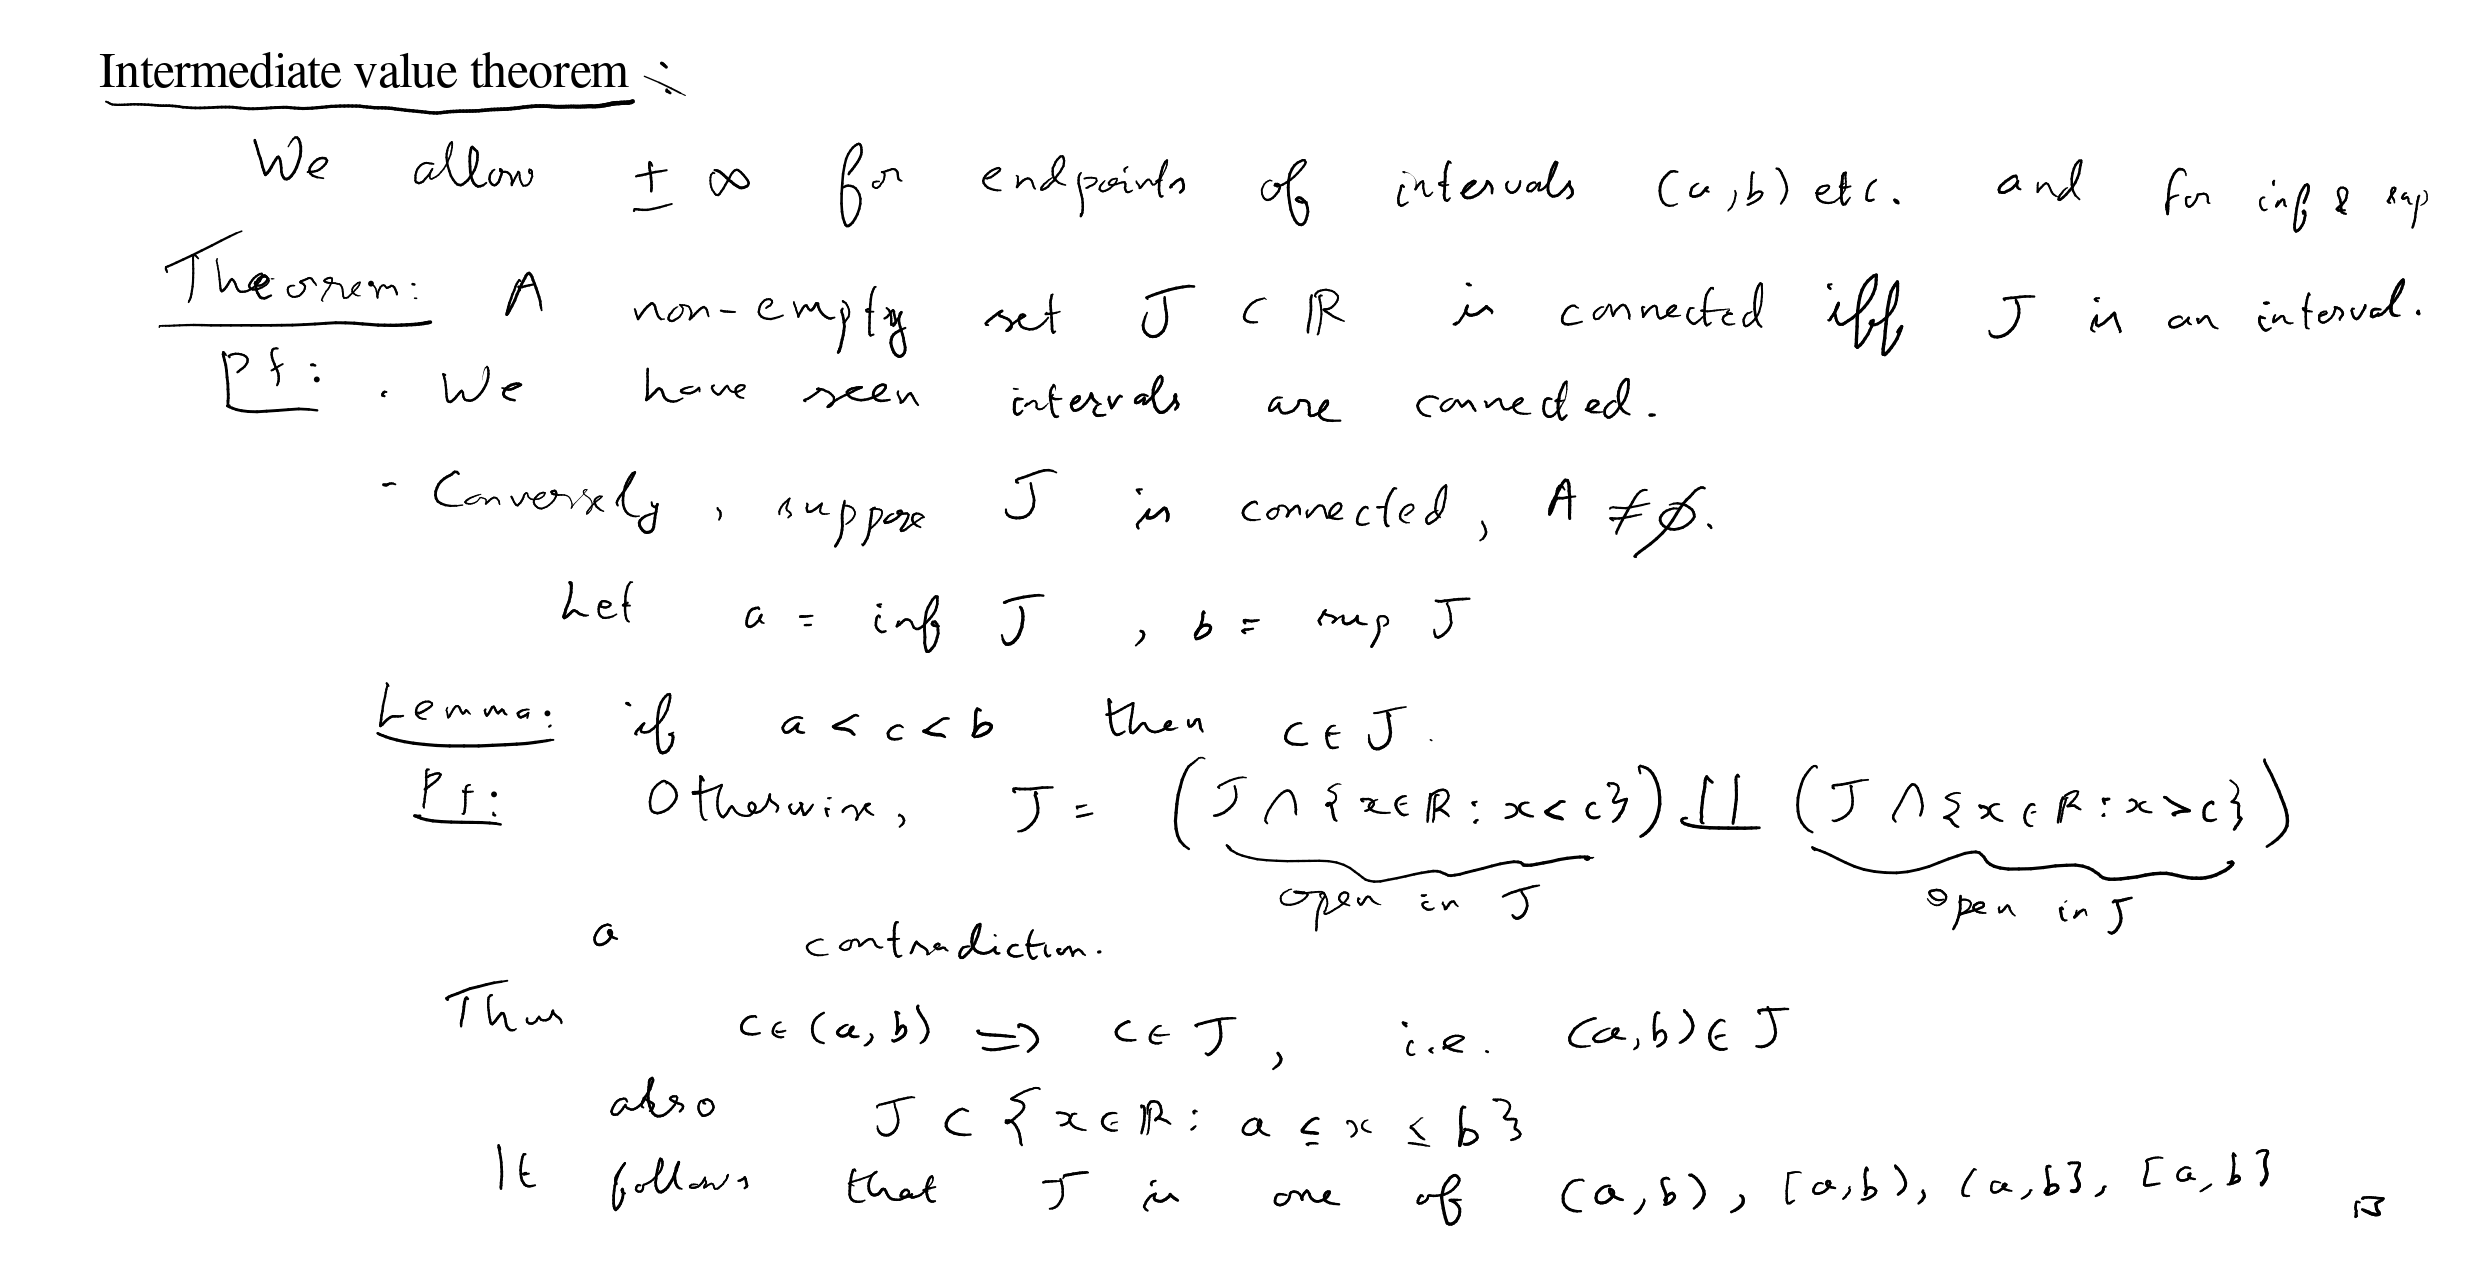 Intermediate value theorem :
We allow ± ∞ for endpoints of intervals (a,b) etc. and for inf & sup
Theorem: A non-empty set J ⊂ ℝ is connected iff J is an interval.
Pf: . We have seen intervals are connected.
- Conversely, suppose J is connected, A ≠ ∅.
Let a = inf J , b = sup J
Lemma: if a < c < b then c ∈ J.
Pf: Otherwise, J = (J ∩ {x ∈ ℝ : x < c}) ⨿ (J ∩ {x ∈ ℝ : x > c})
open in J open in J
a contradiction.
Thus c ∈ (a,b) ⇒ c ∈ J , i.e. (a,b) ∈ J
also J ⊂ {x ∈ ℝ : a ≤ x ≤ b}
It follows that J is one of (a,b), [a,b), (a,b], [a,b] □